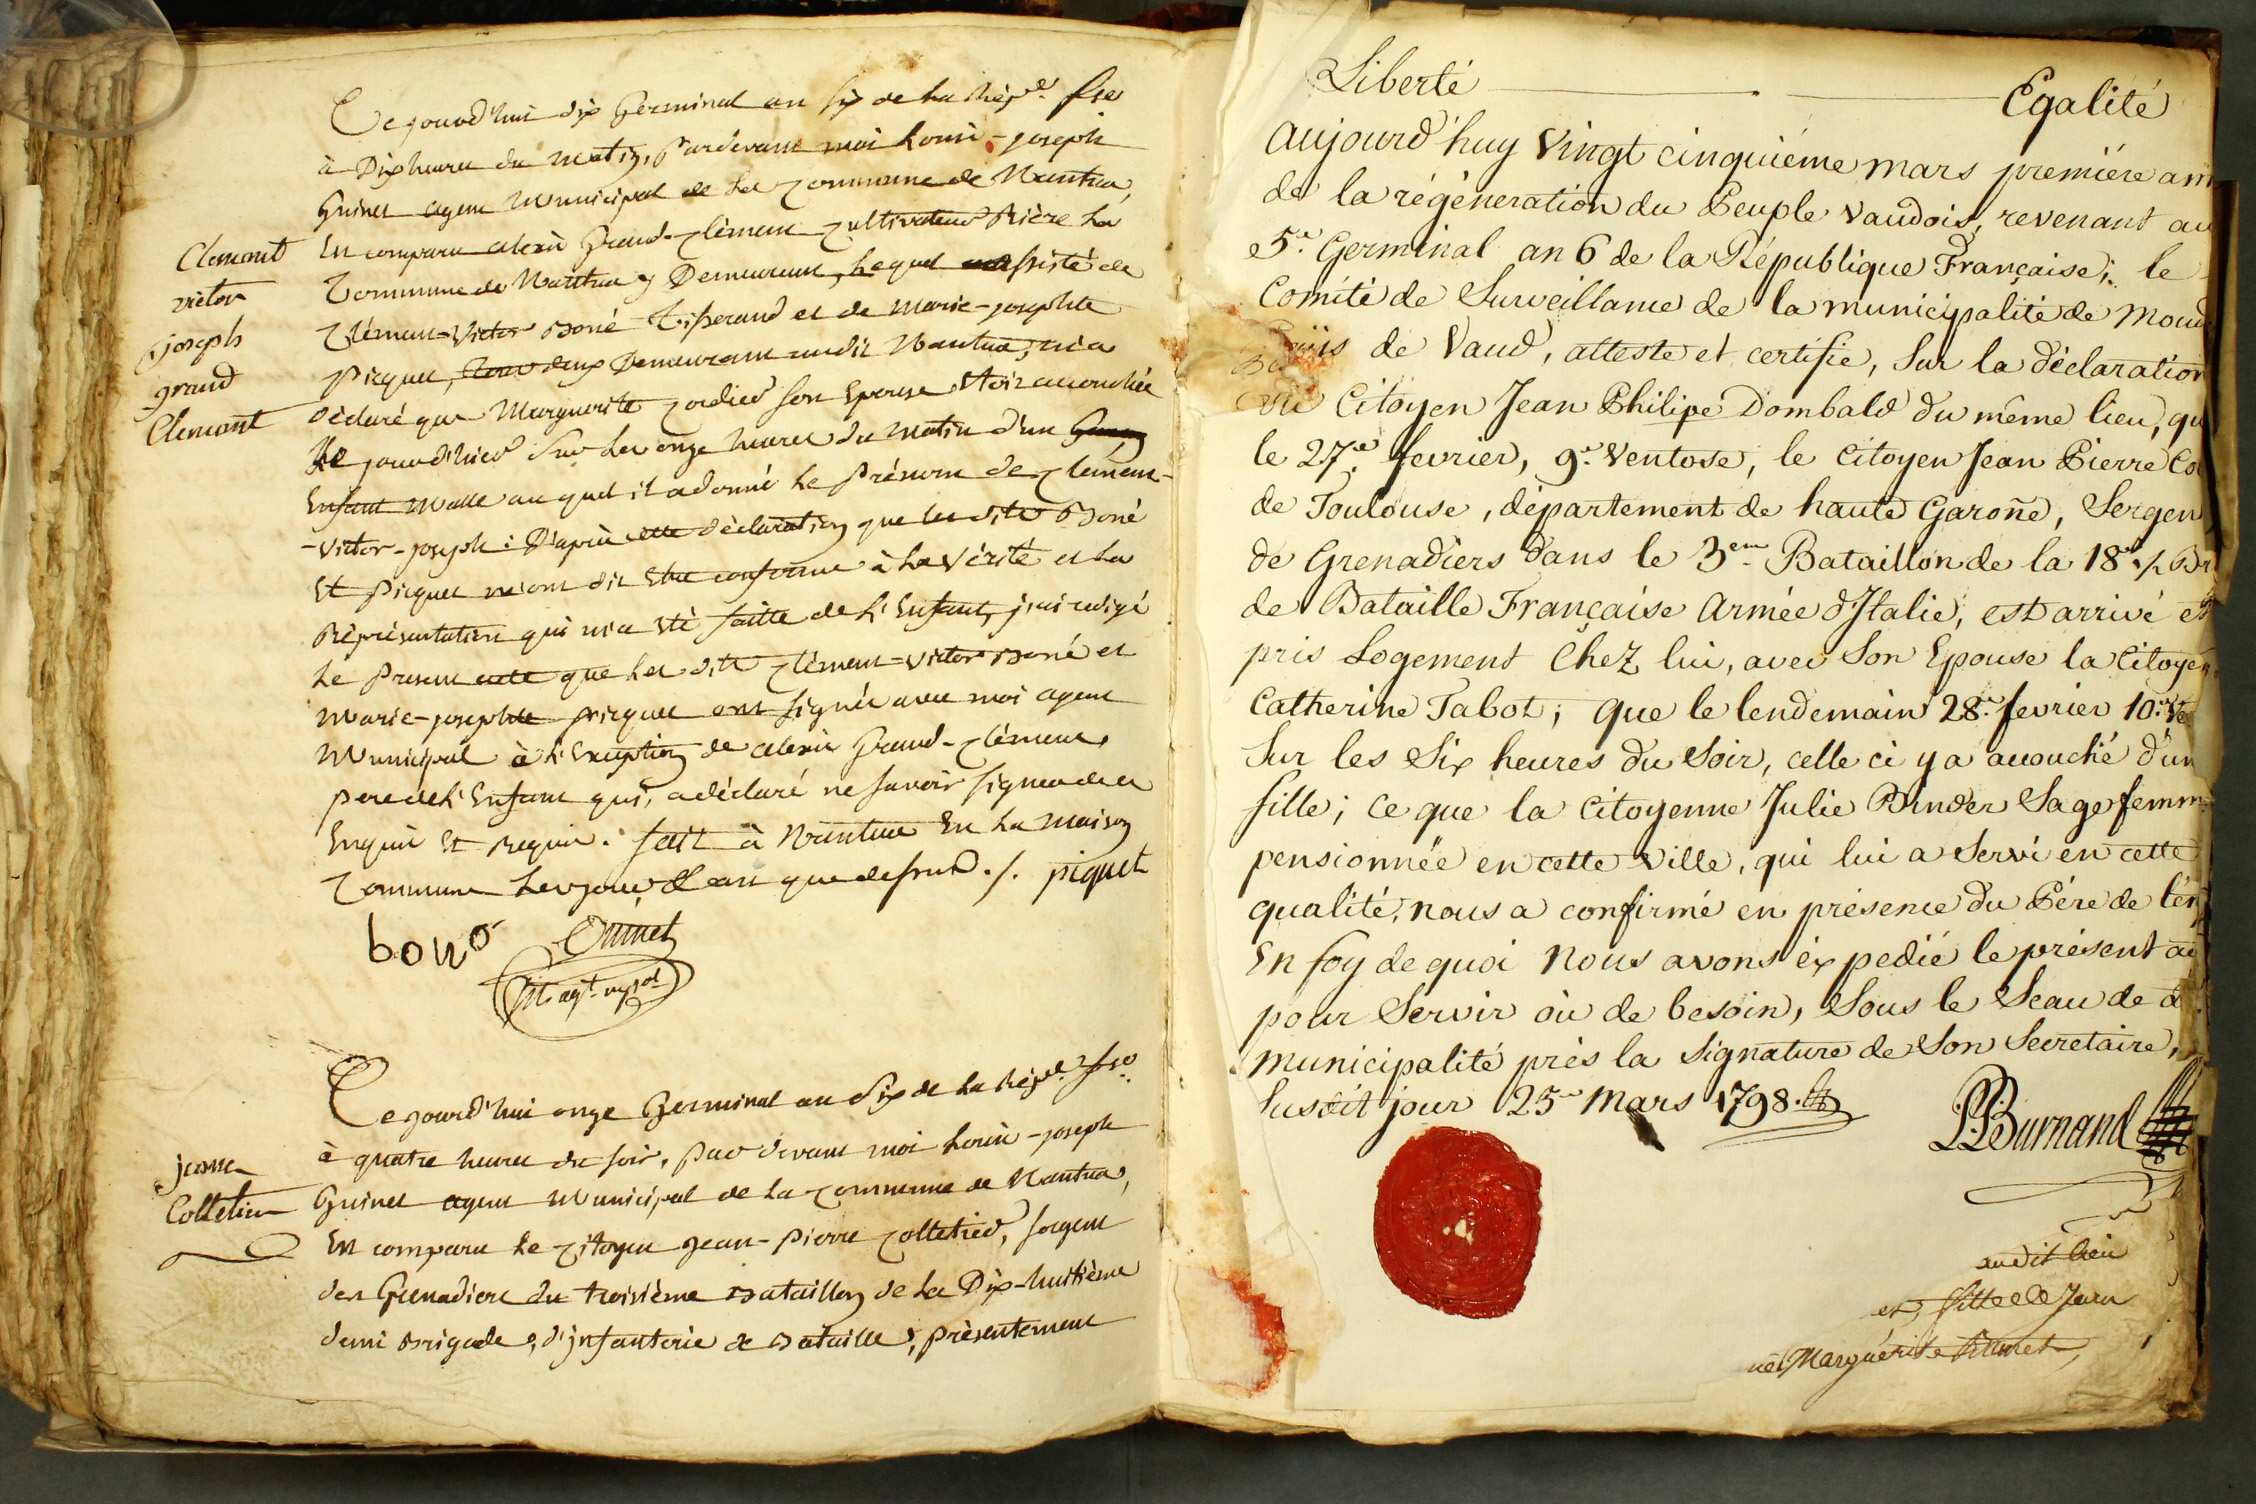 Ce jourd'hui dix Germinal an six de la Répe. fse
à Dix heures du matin, Pardevant moi Louis-joseph
Guinet agent Municipal de la Commune de Nantua,
En comparu alexis Grand-Clément Cultivateur Rière la
Commune de Nantua y Demeurant, Lequel assisté de
Clément-Victor Boné Tisserand et de Marie-josephte
Picquet, tous deux Demeurant audit Nantua, m'a
déclaré que Marguerite son Epouse Est accouchée
Le jourd'hier sur les onze heures du Matin d'un
Enfant Malle au quel il a donné le Prénom de Clément-
-Victor-joseph: D'après cette déclaration que lesdits Boné
Et Picquet m'ont dit Etre conforme à La Vérité et La
Réprésentation qui m'a été faitte de L'Enfant, j'ai redigé
Le Present acte que lesdits Clément-Victor Boné et
Marie-josephte picquet ont signés avec moi agent
Municipal à L'Exception de alexis Grand-Clément,
pere de L'Enfant qui, a déclaré ne savoir signer de ce
Enquis Et Requis. fait à Nantua En La Maison
Commune Les jour & an que dessus ./. piquet
bono Guinet
agt. mpal
Clement
victor
joseph
grand
Clement
Ce jourd'hui onze Germinal an Six de la Répe. fse.
à quatre heures du soir, pardevant moi Louis-joseph
Guinet agent Municipal de La Commune de Nantua,
En comparu le Citoyen Jean-Pierre Colletier, sergent
des Grenadiers du troisième Bataillon de La Dix-huitième
demi Brigade, d'jnfanterie de Bataille, présentement
Colletier
Liberté Egalité
aujourd'huy Vingt cinquiéme mars premiére ann
de la régéneration du Peuple Vaudois, revenant au
5e. Germinal an 6 de la République Française; le
Comité de Surveillance de la municipalité de Moud
Païs de Vaud, atteste et certifie, Sur la déclaration
du Citoyen Jean Philipe Dombald du même lieu, qu
le 27e. fevrier, 9e. Ventose, le Citoyen Jean Pierre Col
de Toulouse, département de haute Garoñe, Sergen
de Grenadiers dans le 3em. Bataillon de la 18e. ½ Br
de Bataille Française Armée d'Italie, est arrivé et
pris Logement Chez lui, avec Son Epouse la Citoyen
Catherine Tabot; que le lendemain 28e. fevrier 10e. Ve
Sur les Six heures du Soir, celle ci y a acouché d'un
fille; ce que la Citoyenne Julie Binder Sage femm
pensionnée en cette Ville, qui lui a Servi en cette
qualité, nous a confirmé en présence du Pére de l'en
En foy de quoi Nous avons éxpedié le présent ac
pour Servir où de besoin, Sous le Seau de d
municipalité près la Signature de Son Secretaire,
Susdit jour 25e Mars 1798.
Burnand
audit lieu
et fille de Jean
Marguérite